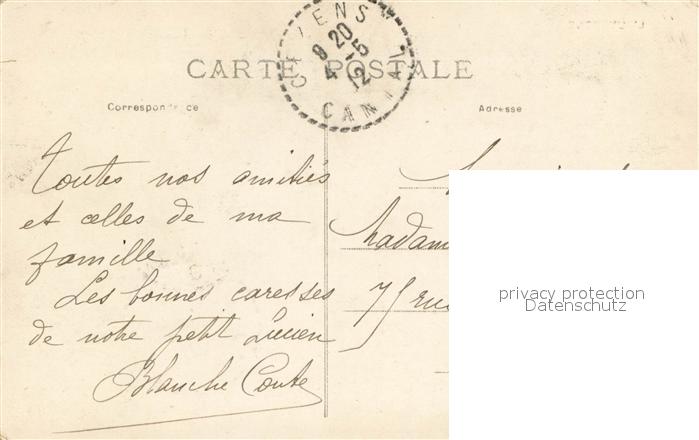 CARTE POSTALE
9 20
4 -5
12
CANTAL
Correspondance
Adresse
Toutes nos amitiés
et celles de ma
famille
Les bonnes caresses
de notre petit Lucien
Blanche Conte
Madam
75 rue
privacy protection
Datenschutz